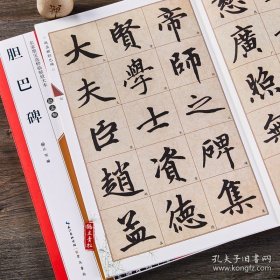 慈廣照無上
帝師之碑集
賢學士資德
大夫臣趙孟
胆巴碑
孔夫子旧书网